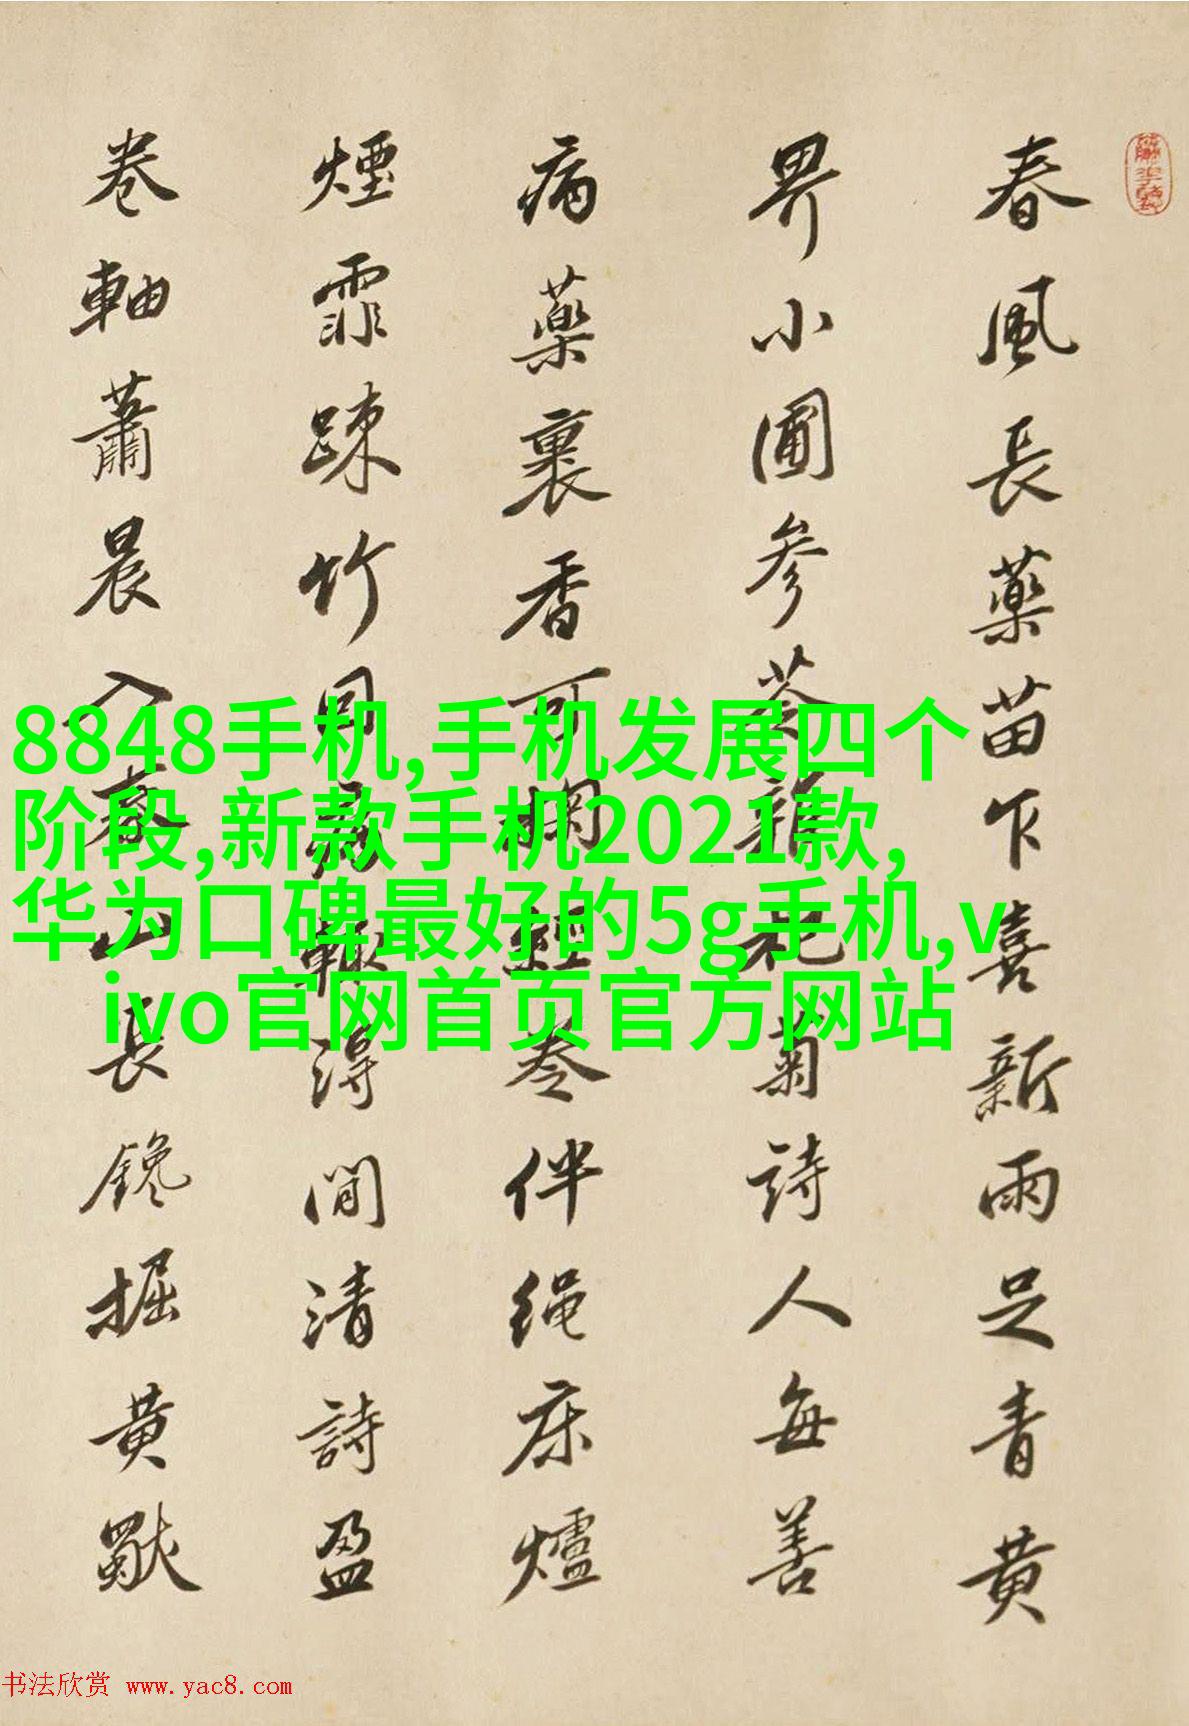 春風長藥苗下喜新雨足青黄
界小圃参苓雜杞菊詩人每善
病藥裹香可掬經卷伴绳床爐
煙霏踈竹日得閒清詩盈
卷軸蕭晨入春山長鑱掘黄
8848手机,手机发展四个
阶段,新款手机2021款,
华为口碑最好的5g手机,v
ivo官网首页官方网站
书法欣赏 www.yac8.com